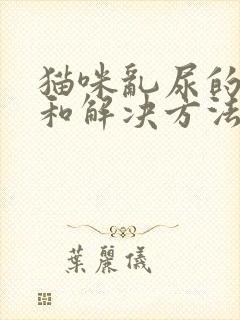 猫咪乱尿的
和解决方法
葉麗儀